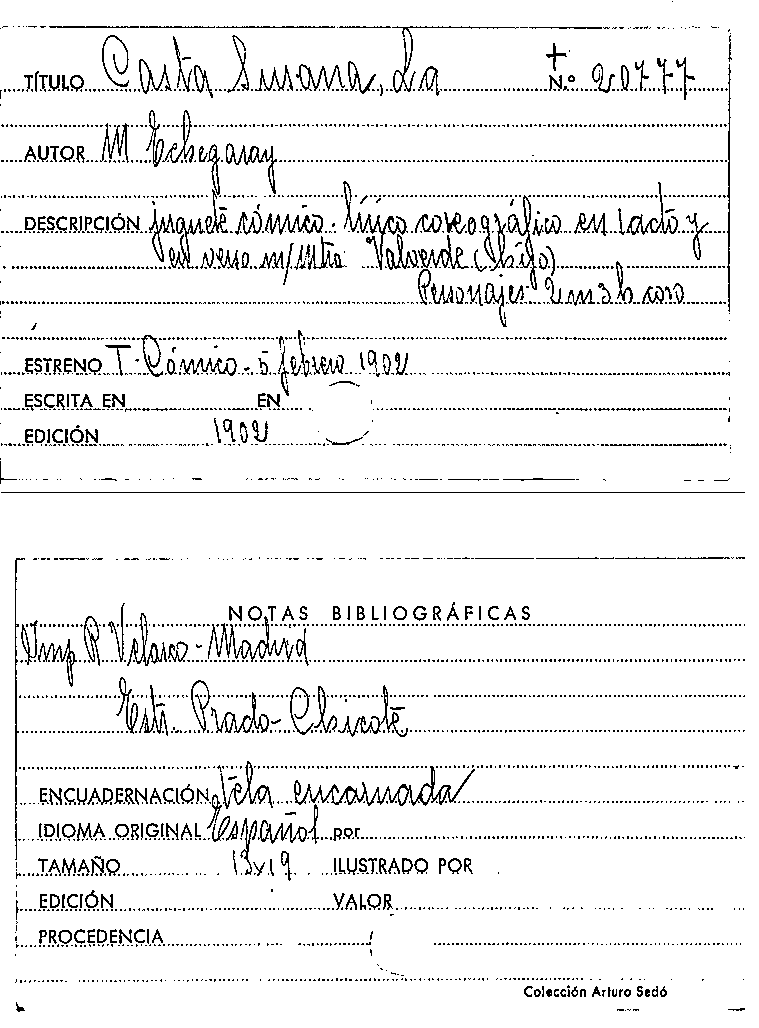 TÍTULO Casta Susana, La + N.º 20777
AUTOR M Echegaray
DESCRIPCIÓN juguete cómico-lírico coreográfico en 1 acto y
en verso m/ Mtro Valverde (hijo)
Personajes 2 m 3 h coro
ESTRENO T. Cómico - 5 febrero 1902
ESCRITA EN EN
EDICIÓN 1902
NOTAS BIBLIOGRÁFICAS
Imp R Velasco - Madrid
Estr. Prado-Chicote
ENCUADERNACIÓN Tela encarnada
IDIOMA ORIGINAL Español por
TAMAÑO 13x19 ILUSTRADO POR
EDICIÓN VALOR
PROCEDENCIA
Colección Arturo Sedó